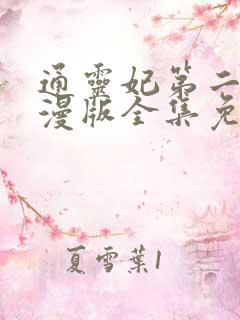 通靈妃第二
漫版全集免
夏雪葉1